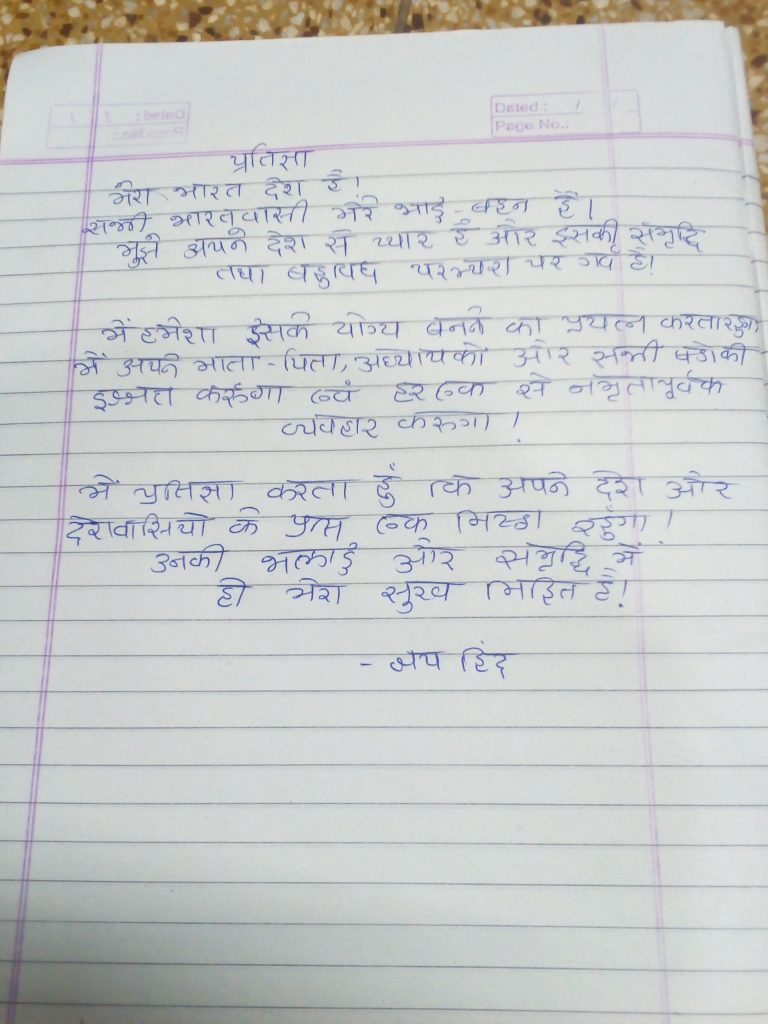 Dated : / /
Page No.:
Dated : / /
Page No.:
प्रतिज्ञा
मेरा भारत देश है।
सभी भारतवासी मेरे भाई - बहन हैं।
मुझे अपने देश से प्यार है और इसकी समृद्धि
तथा बहुविध परम्परा पर गर्व है।
में हमेशा इसके योग्य बनने का प्रयत्न करता रहुंगा
में अपने माता - पिता, अध्यापको और सभी बडोकी
इज्जत करुंगा एवं हर एक से नम्रतापूर्वक
व्यवहार करुगा !
में प्रतिज्ञा करता हुं कि अपने देश और
देशवासियो के एक निष्ठा रहुंगा !
उनकी भलाई और समृद्धि में
ही मेरा सुख निहित है !
- जय हिंद